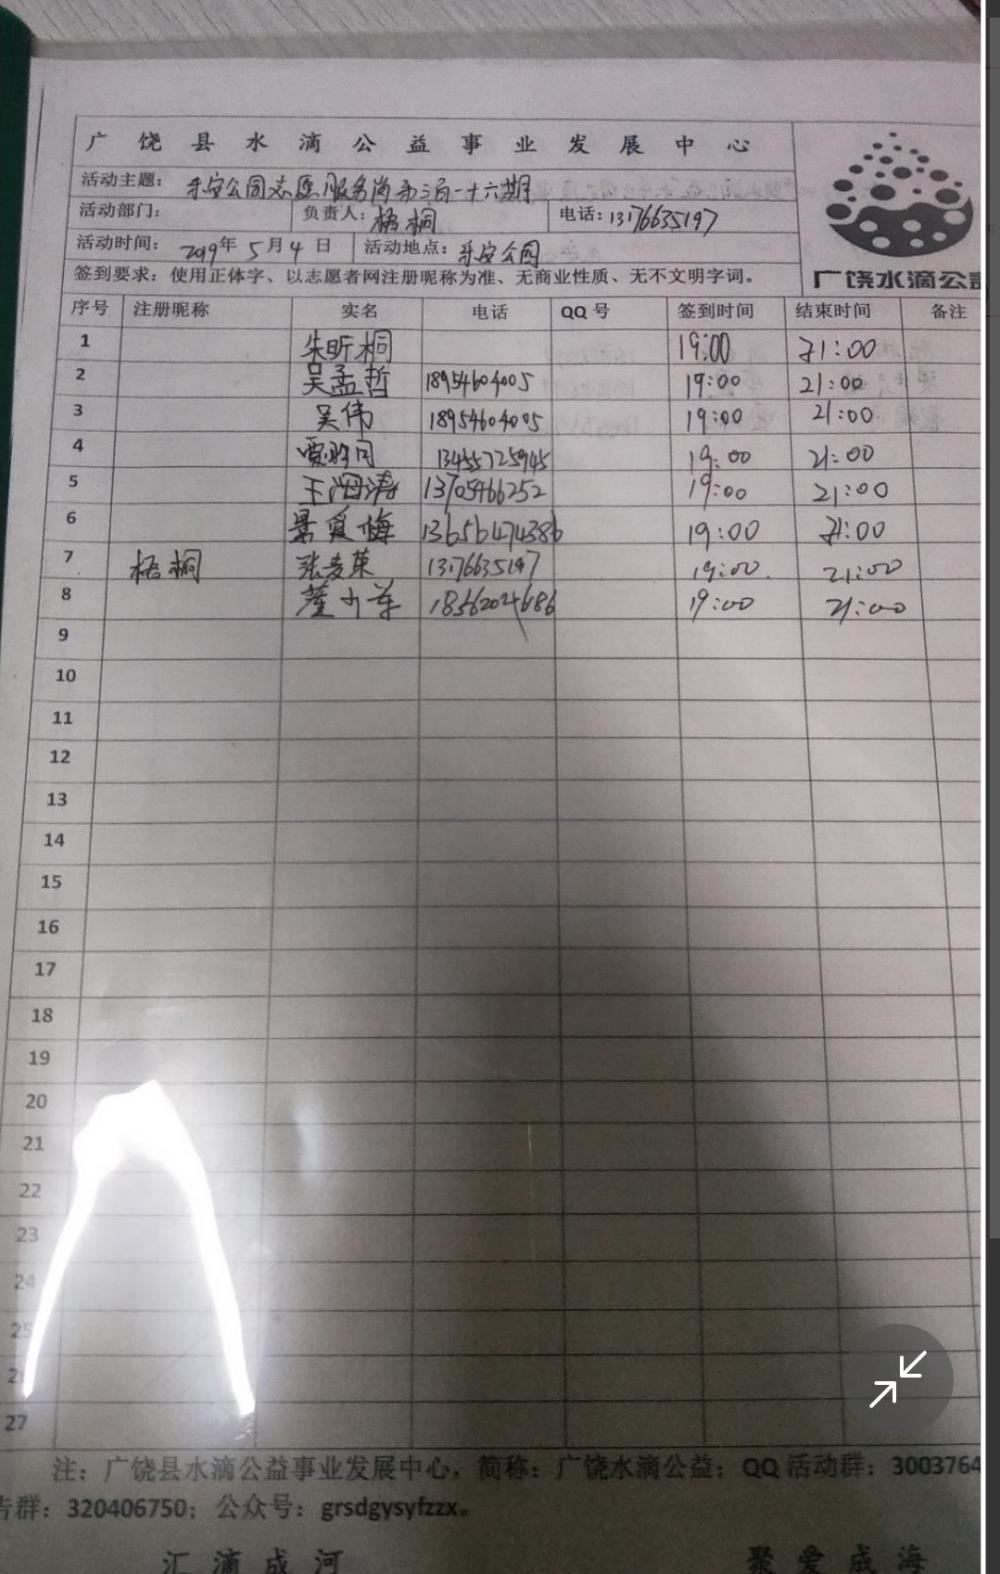 广饶县水滴公益事业发展中心
活动主题: 乐安公园志愿服务岗第三百一十六期
活动部门: 负责人: 梧桐 电话: 13176635197
活动时间: 2019年 5月 4日 活动地点: 乐安公园
签到要求: 使用正体字、以志愿者网注册昵称为准、无商业性质、无不文明字词。
广饶水滴公益
序号 注册昵称 实名 电话 QQ号 签到时间 结束时间 备注
1 朱昕桐 19:00 21:00
2 吴孟哲 18954604005 19:00 21:00
3 吴伟 18954604005 19:00 21:00
4 13455725945 19:00 21:00
5 王海涛 13705466252 19:00 21:00
6 景爱梅 13656474386 19:00 21:00
7 梧桐 张麦菊 13176635197 19:00 21:00
8 18562024686 19:00 21:00
9
10
11
12
13
14
15
16
17
18
19
20
21
22
23
24
25
27
注: 广饶县水滴公益事业发展中心, 简称: 广饶水滴公益; QQ活动群: 3003764
告群: 320406750; 公众号: grsdgysyfzzx。
汇滴成河 聚爱成海